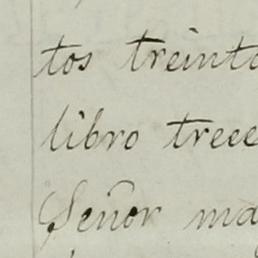 tos treinta
libro trece
Señor ma